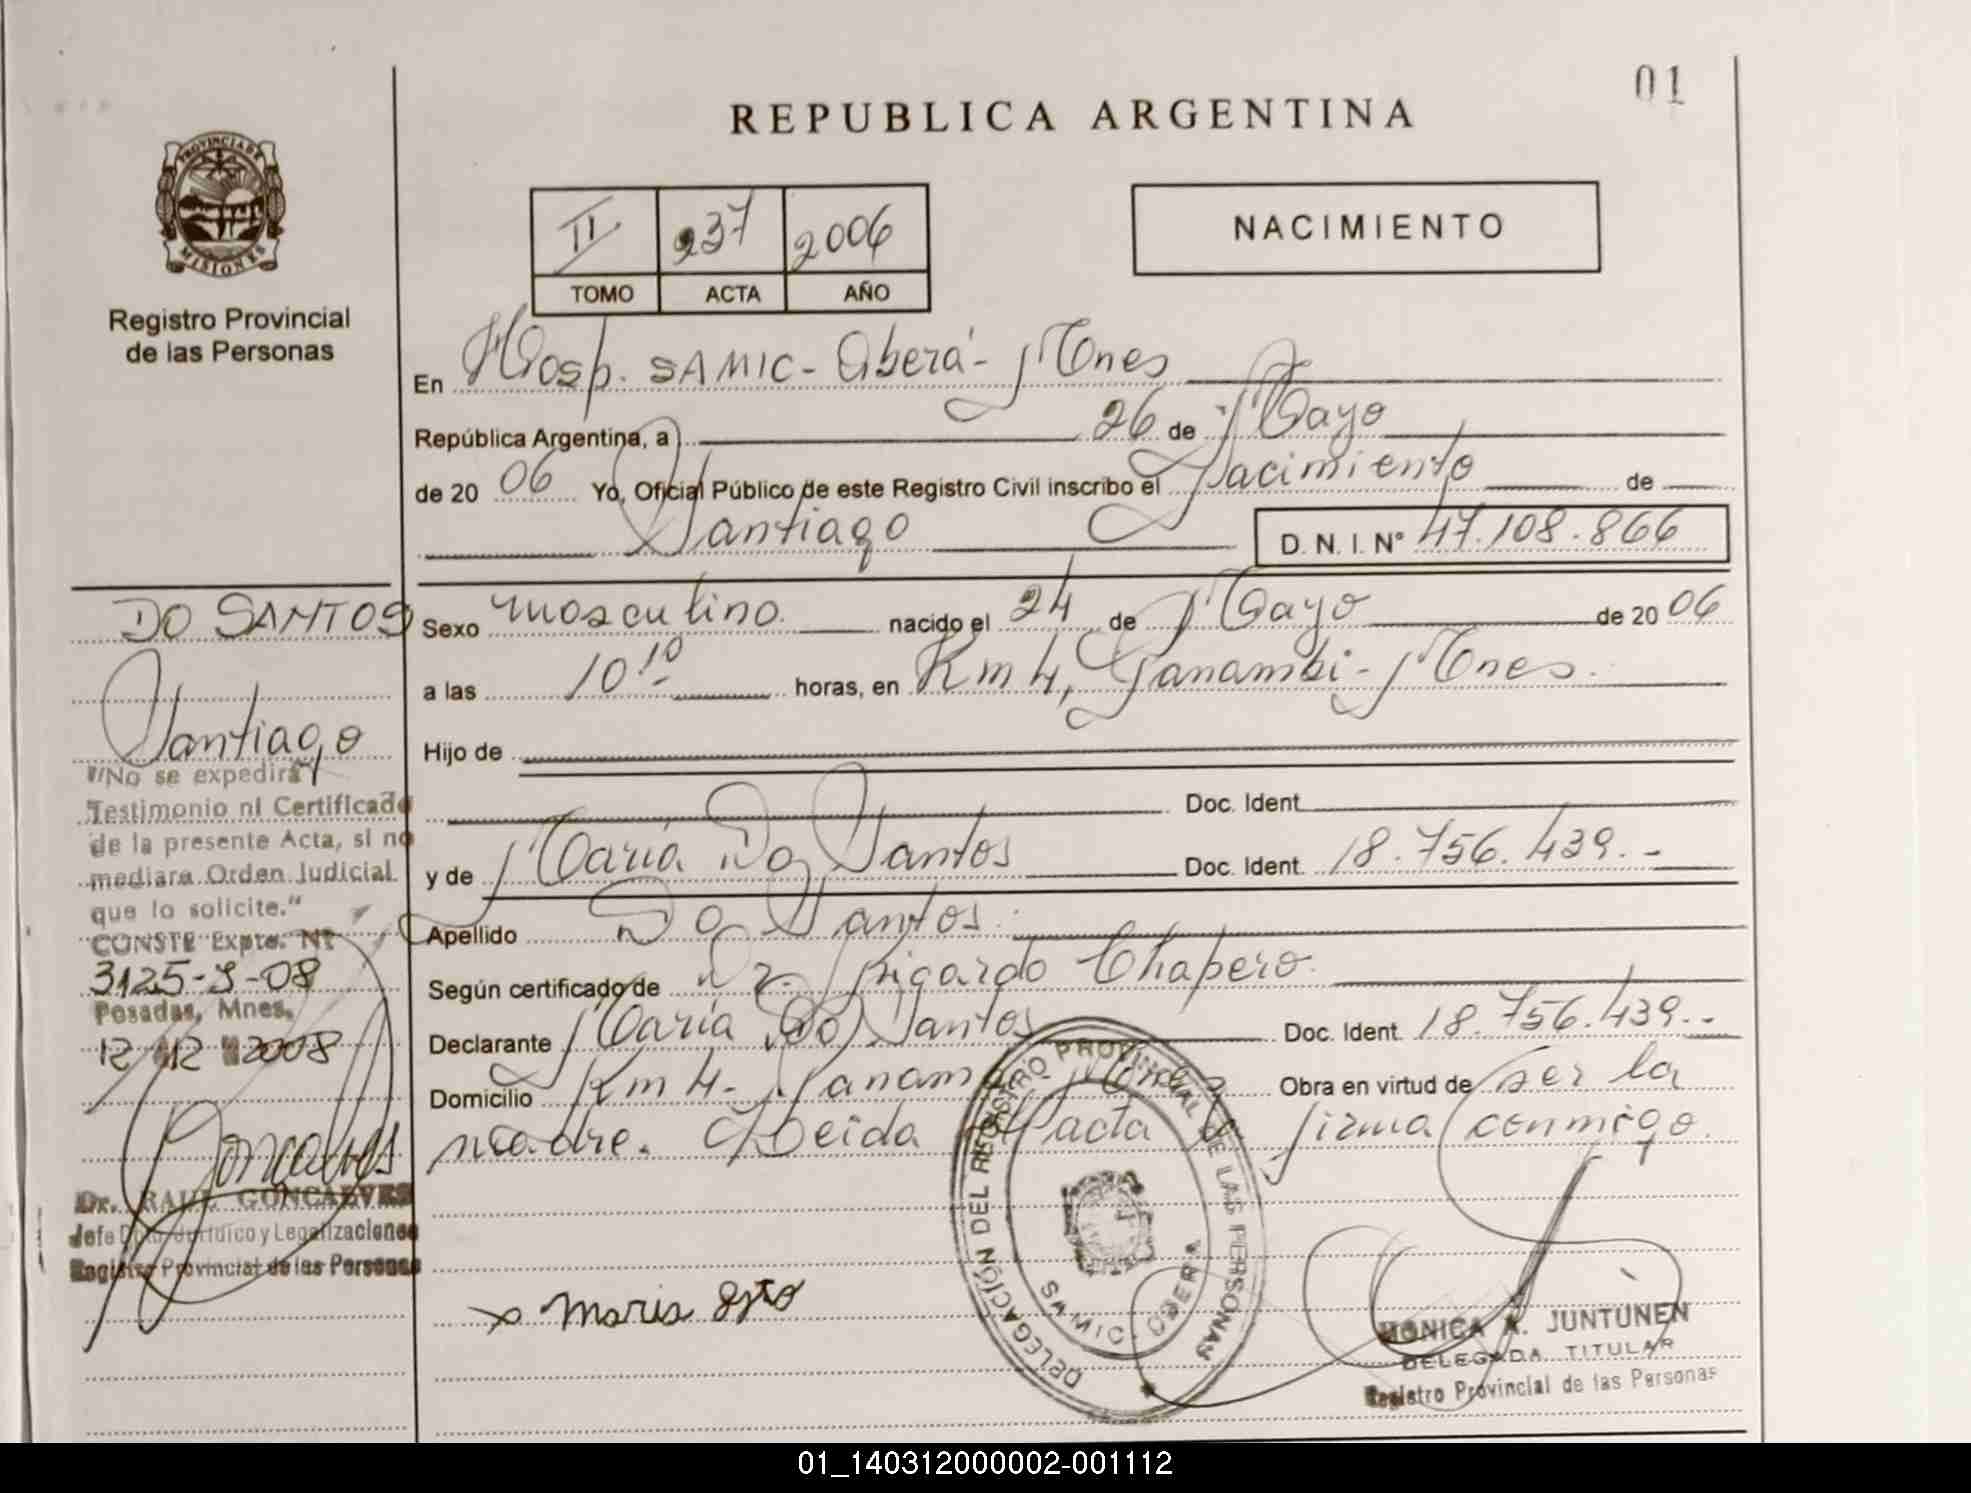 01
REPUBLICA ARGENTINA
PROVINCIA DE
MISIONES
Registro Provincial
de las Personas
II 237 2006
TOMO ACTA AÑO
NACIMIENTO
En Hosp. SAMIC - Oberá - Mnes
República Argentina, a 26 de Mayo
de 20 06 Yo, Oficial Público de este Registro Civil inscribo el Nacimiento de
Santiago D. N. I. N° 47.108.866
Sexo masculino nacido el 24 de Mayo de 20 06
a las 10 10 horas, en Km 4, Panambi - Mnes.
Hijo de
Doc. Ident.
y de María Do Santos Doc. Ident. 18.756.439.-
Apellido Do Santos.
Según certificado de Dr. Ricardo Chapero.
Declarante María Do Santos Doc. Ident. 18.756.439.-
Domicilio Km 4 - Panambi - Mnes Obra en virtud de ser la
madre. Leida el acta firma conmigo.
DO SANTOS
Santiago
"No se expedirá
Testimonio ni Certificado
de la presente Acta, si no
mediare Orden Judicial
que lo solicite."
CONSTE Expte. Nº
3125-S-08
Posadas, Mnes.
12 12 2008
Goncalves
Dr. RAUL GONCALVES
Jefe Dpto. Jurídico y Legalizaciones
Registro Provincial de las Personas
x Maria
DELEGACIÓN DEL REGISTRO PROVINCIAL DE LAS PERSONAS
SAMIC - OBERA
MONICA R. JUNTUNEN
DELEGADA TITULAR
Registro Provincial de las Personas
01_140312000002-001112